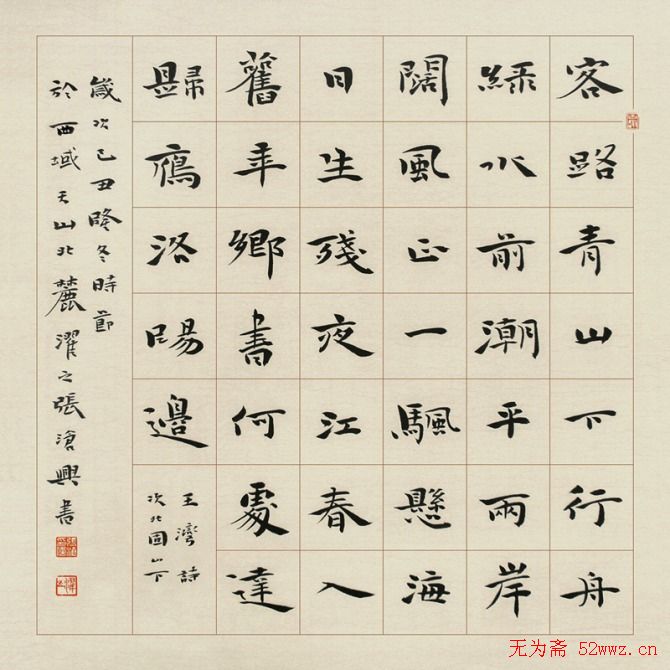 客路青山下行舟
綠水前潮平兩岸
闊風正一颿懸海
日生殘夜江春入
舊年鄉書何處達
歸鴈洛陽邊
王灣詩
次北固山下
歲次己丑隆冬時節
於西域天山北麓濯之張滄興書
无为斋 52wwz.cn